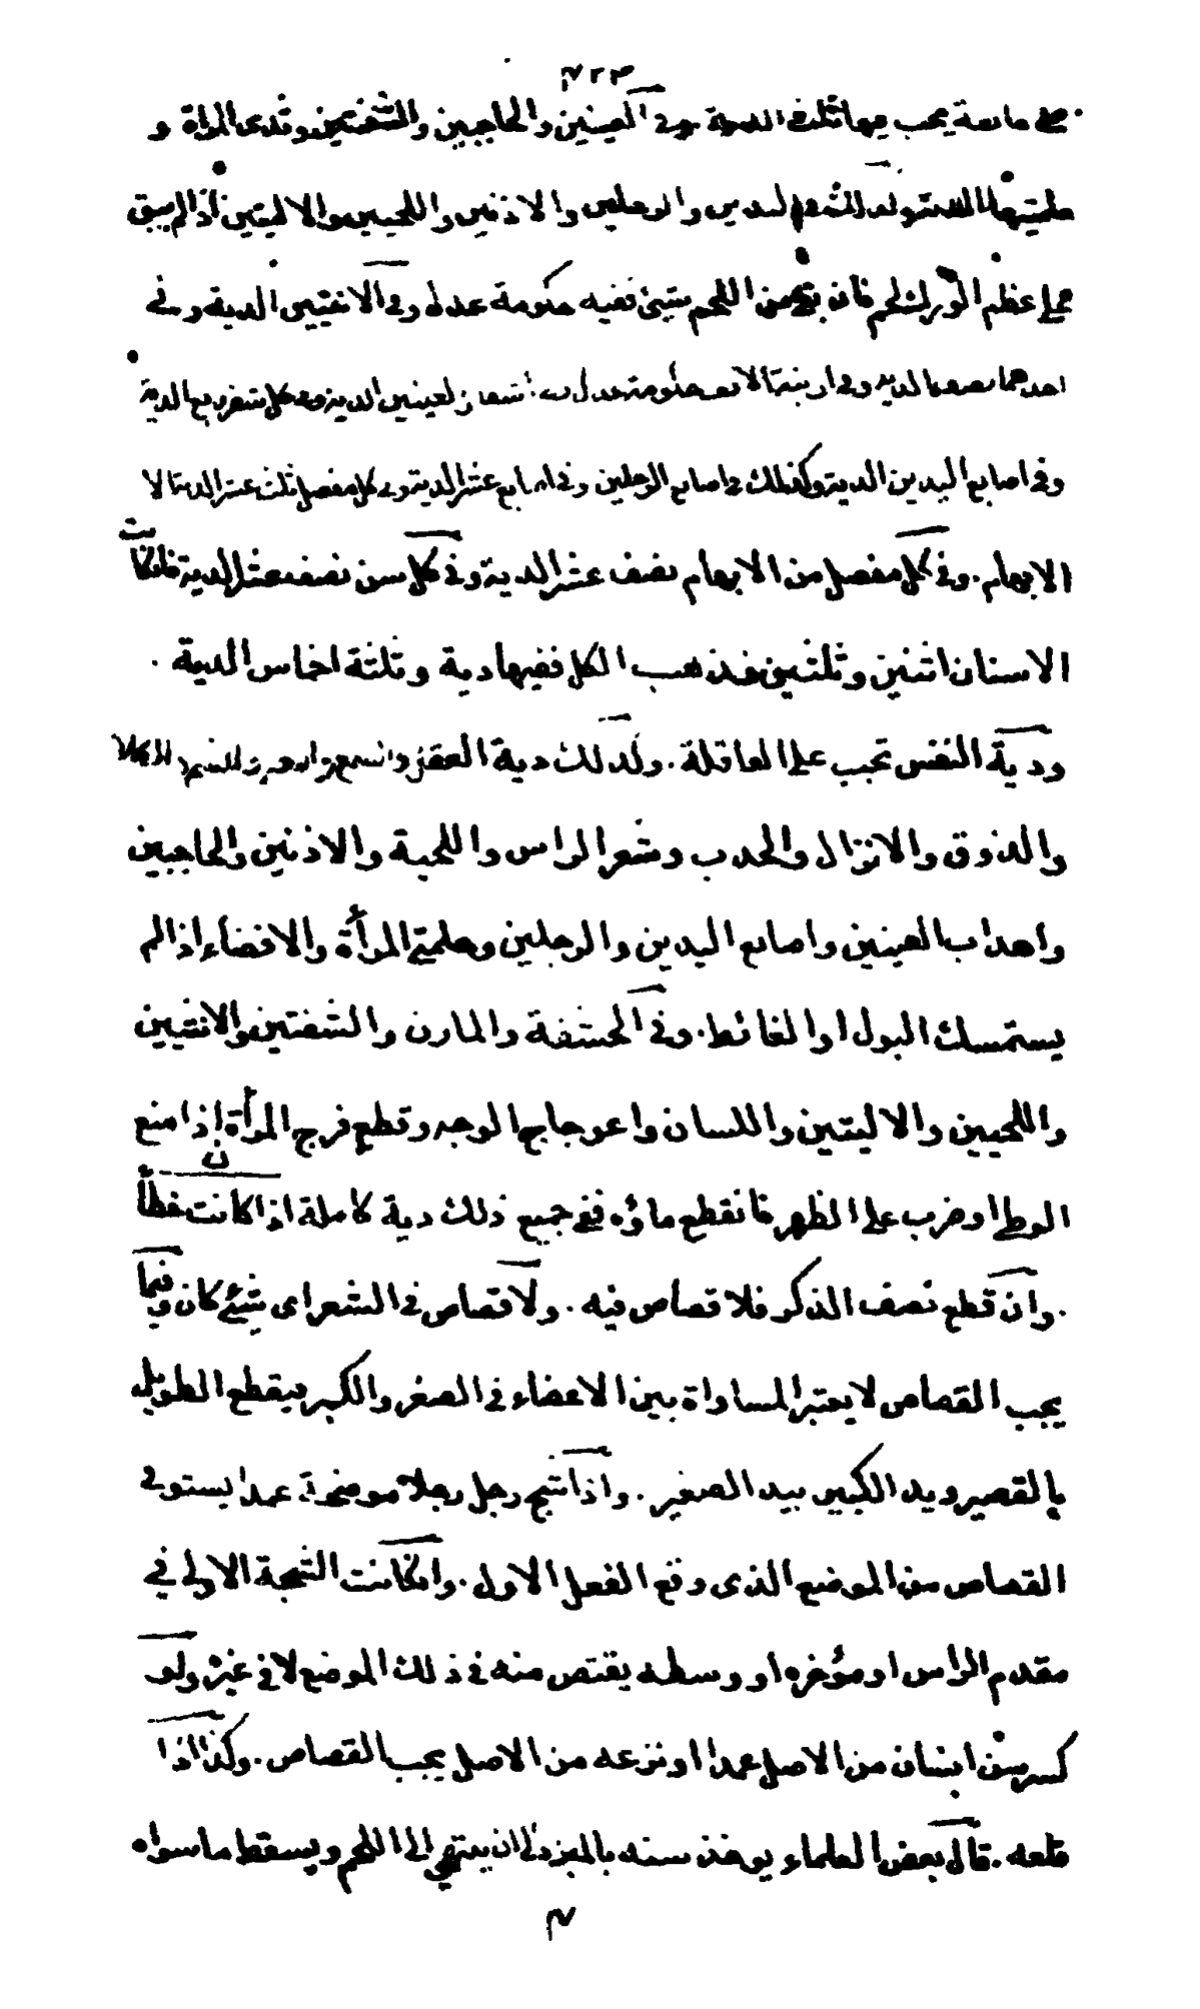 ٤٢٣
يجب فيها ثلث الدية وفى العينين والحاجبين والشفتين وثدى المراة و
حلمتيها اليدين والرجلين والاذنين واللحيين والاليتين اذا لم يبق
على عظم الورك لحم فان بقى من اللحم شيئ ففيه حكومة عدل وفى الانثيين الدية وفى
احدهما نصف الدية وفى ارنبة الانف حكومة عدل العينين الدية وفى كل شفر ربع الدية
وفى اصابع اليدين الدية وكذلك فى اصابع الرجلين وفى اصابع عشر الدية وفى كل مفصل ثلث عشر الدية الا
الابهام . وفى كل مفصل من الابهام نصف عشر الدية وفى كل سن نصف عشر الدية فانكانت
الاسنان اثنين وثلثين فذهب الكل ففيها دية وثلثة اخماس الدية .
ودية النفس تجب على العاقلة . وكذلك دية العقل والسمع والبصر والشم والكلام
والذوق والانزال والحدب وشعر الراس واللحية والاذنين والحاجبين
واهداب العينين واصابع اليدين والرجلين وحلمتى المرأة والافضاء اذا لم
يستمسك البول او الغائط . وفى الحشفة والمارن والشفتين والانثيين
واللحيين والاليتين واللسان واعوجاج الوجه وقطع فرج المرأة ان اذا منع
الوطى او ضرب على الظهر فانقطع ماؤه ففى جميع ذلك دية كاملة اذا كانت خطأ
. وان قطع نصف الذكر فلا قصاص فيه . ولا قصاص فى الشعر اى شيئ كان وفيما
يجب القصاص لا يعتبر المساواة بين الاعضاء فى الصغر والكبر فيقطع الطويل
بالقصير ويد الكبير بيد الصغير . واذا شج رجل رجلا موضحة عمدا يستوفى
القصاص من الموضع الذى وقع الفعل الاول . وانكانت الشجة الاولى فى
مقدم الراس او مؤخره او وسطه يقتص منه فى ذلك الموضع لا فى غيره ولو
كسر سن انسان من الاصل عمدا او نزعه من الاصل يجب القصاص . وكذا اذا
قلعه . قال بعض العلماء يوخذ سنه بالمبرد الى ان ينتهى الى اللحم ويسقط ما سواه